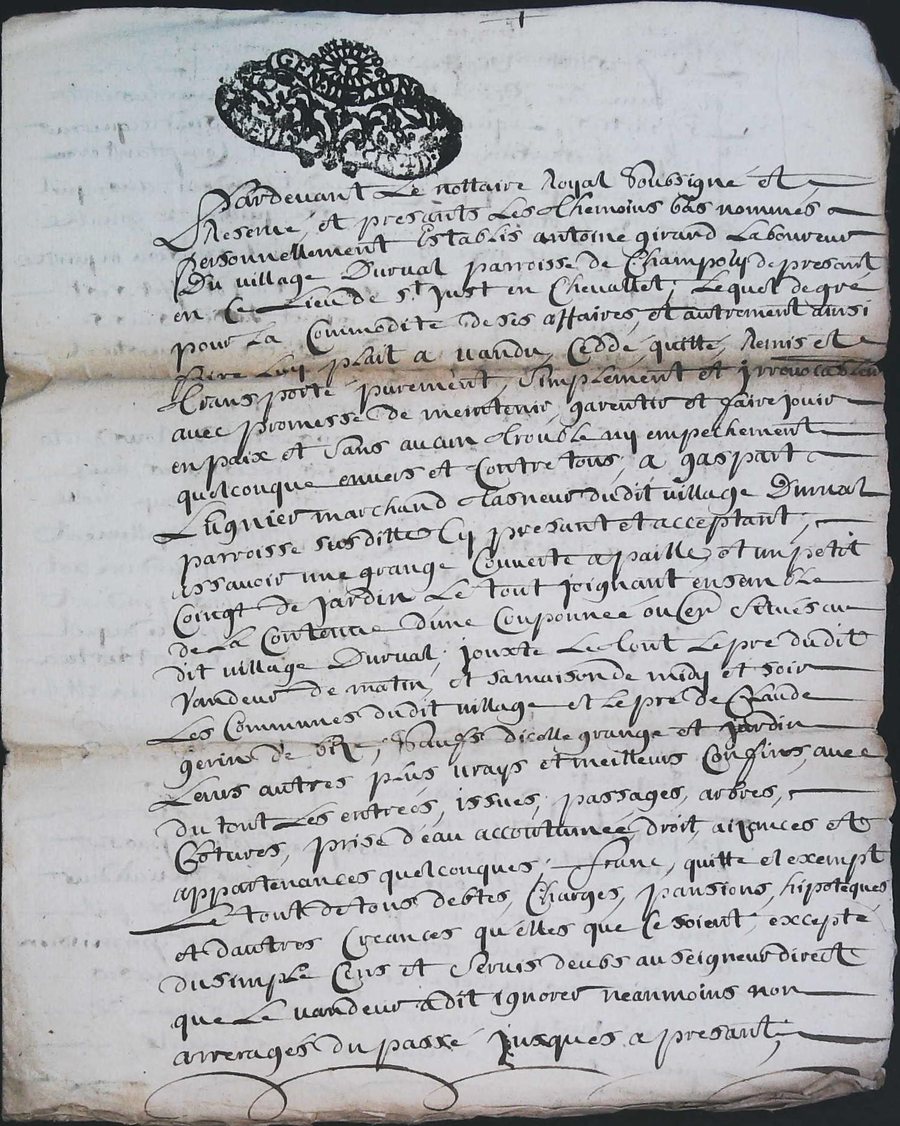 GEN DE LYON
Pardevant Le nottaire Royal Soussigné et
Reservé, et presants Les themoins bas nommés
Personnellement Establis antoine girard Laboureur
Du village Durval parroisse de Champoly de presant
en Ce Lieu de St Just en Chevallet; Lequel de gre
pour La Commodité de ses affaires, et autrement ainsi
faire Luy plait a vandu, Cedde, quitte, Remis et
transporté purement, Simplement et Irrevocablem
avec promesse de meintenir, garentir et faire jouir
en paix et Sans aucun trouble ny empechement
quelconque envers et Contre tous, a gaspart
Lugnier marchand tasneur dudit village Durval
parroisse susditte Cy presant et acceptant,
assavoir une grange Couverte a paille, et un petit
Coingt de Jardin Le tout Joignant ensemble
de La Contenue d'une Couponnée ou en Situés au
dit village Durval, jouxte Le tout Le pré dudit
vandeur de matin, et sa maison de midy et soir
Les Communes dudit village et Le pré de Claude
gerin de bize, Saufs d'icelle grange et jardin
Leurs autres plus vrays et meilleurs Confins, avec
du tout Les entrées, issues, passages, arbres,
Clotures, prise d'eau accoutumée, droit, aizances et
appartenances quelconques, franc, quitte et exempt
Le tout de tous debtes, Charges, pansions, hipoteques
et d'autres Creances qu'elles que Ce soient, excepté
du simple Cens et Servis deubs au seigneur direct
que Le vandeur a dit ignorer neanmoins non
arrerages du passé jusques a presant,